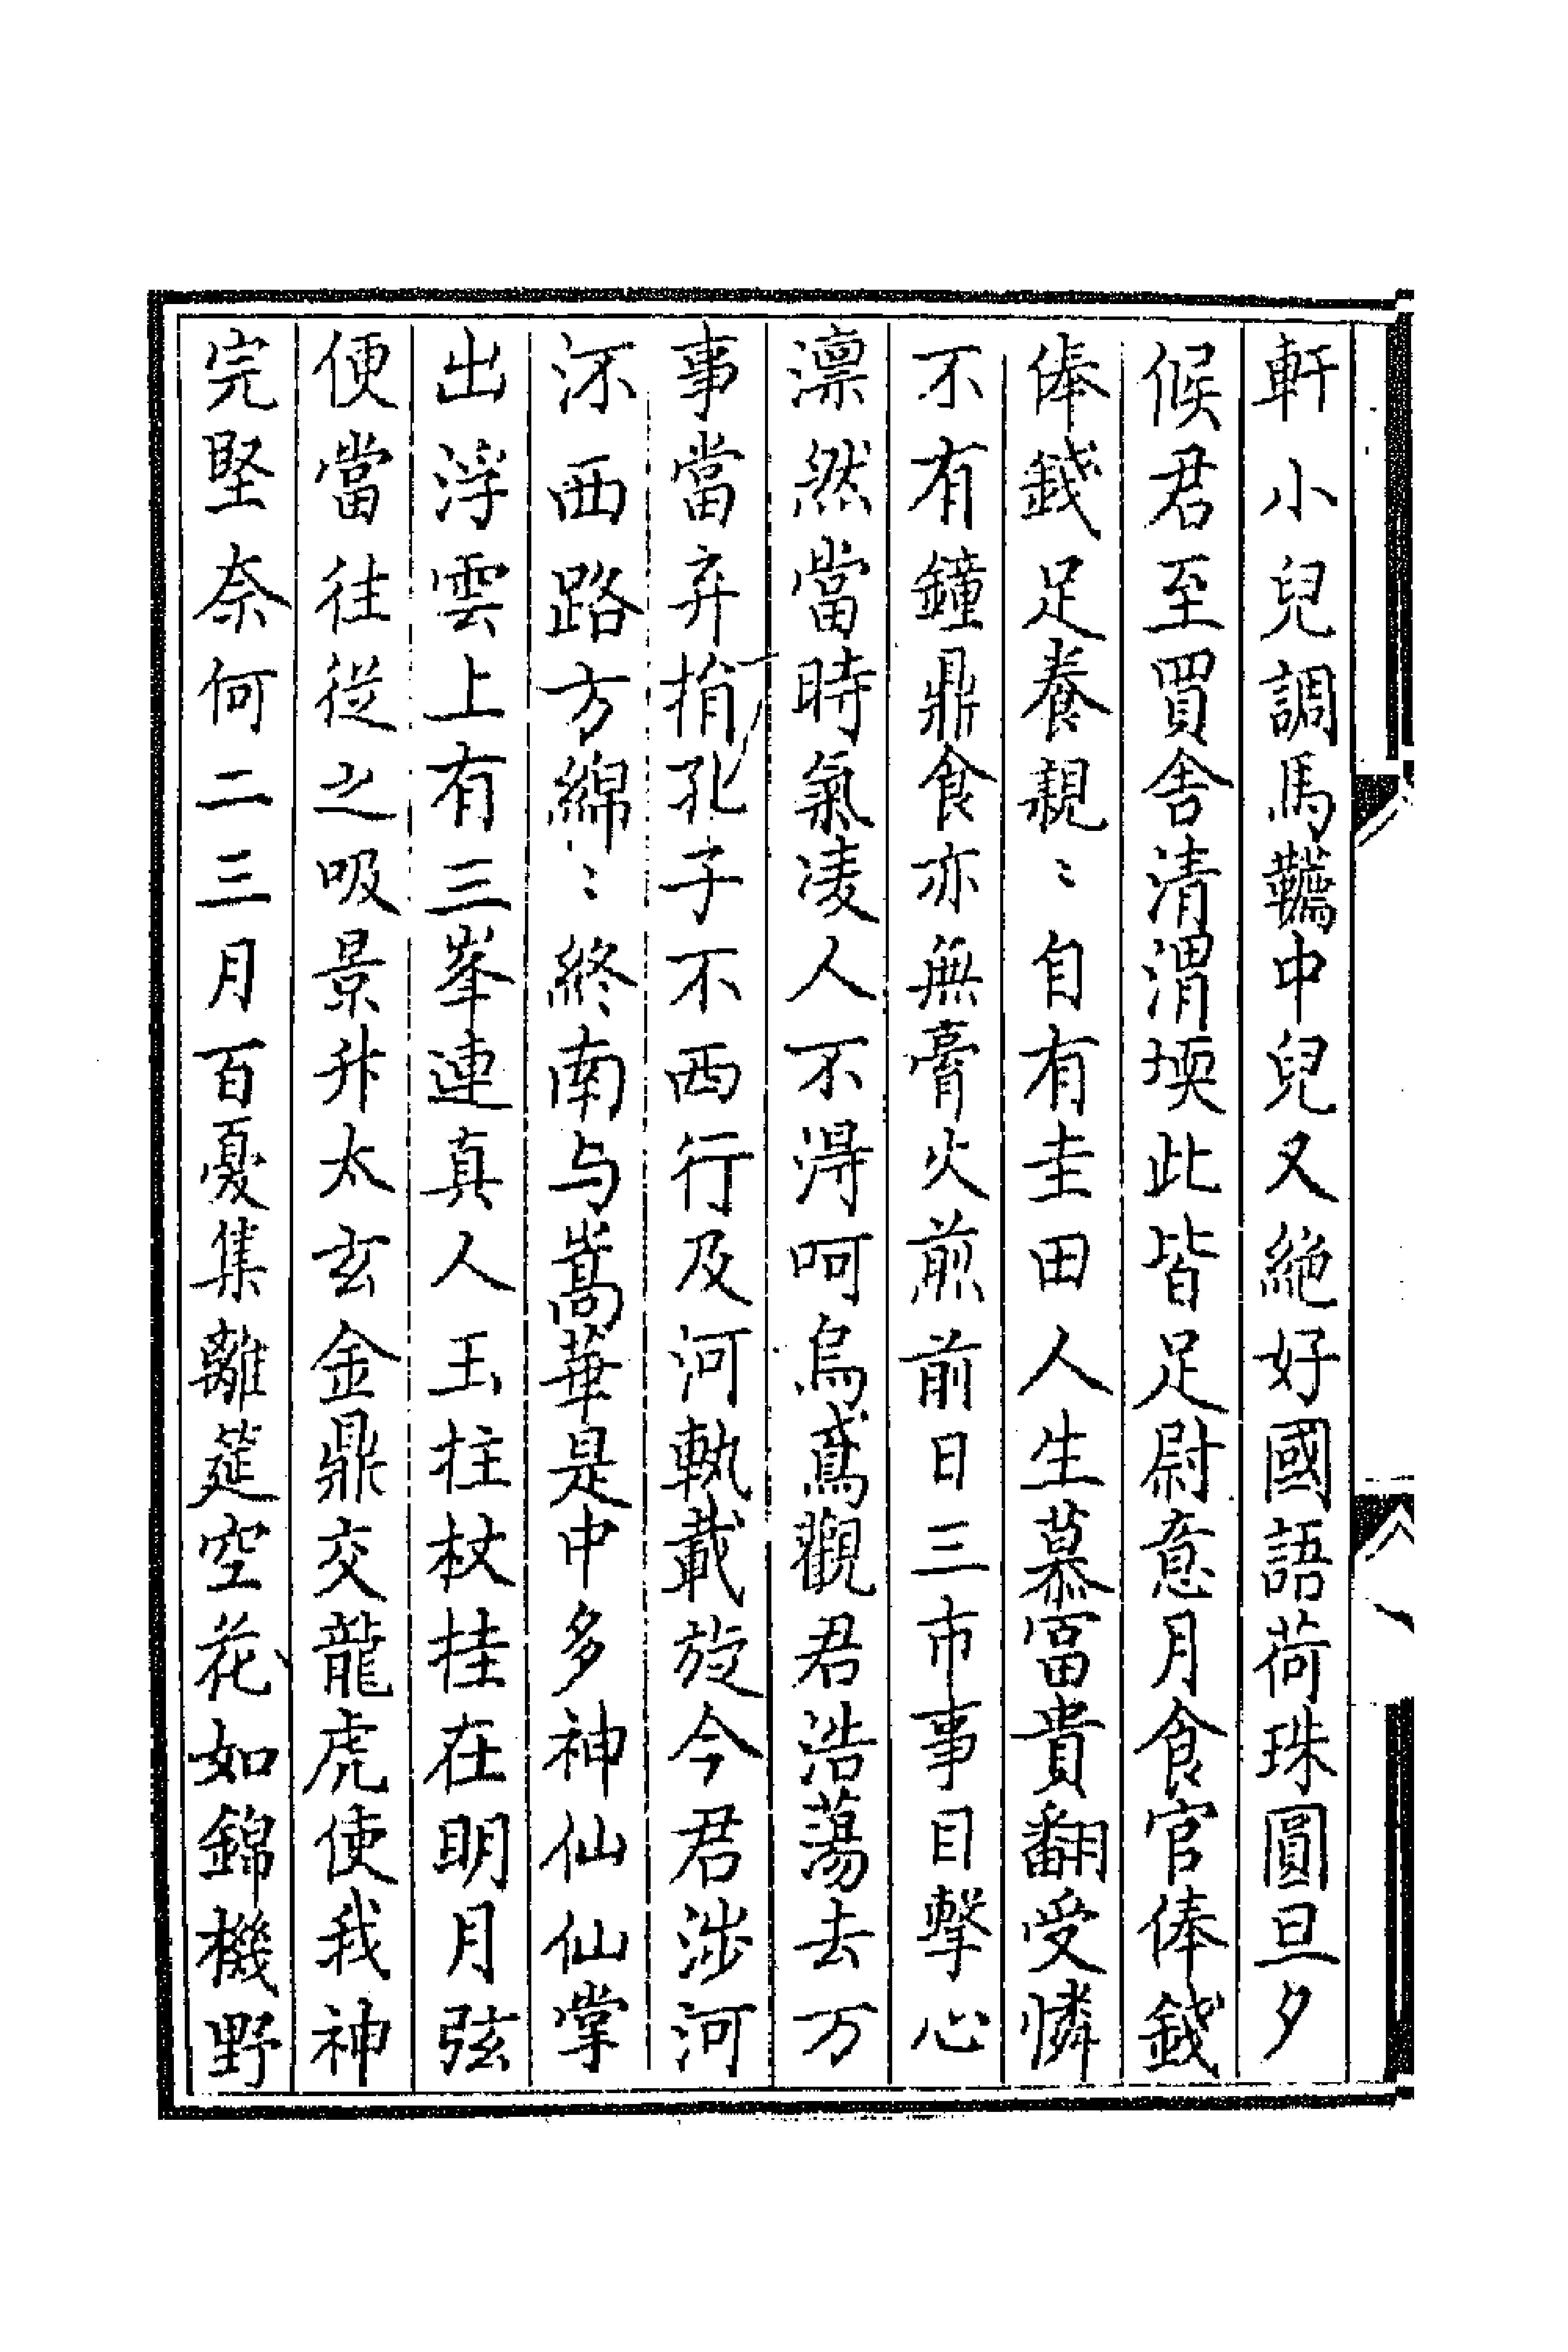 軒小兒調馬韉中兒又絶好國語荷珠圓旦夕
候君至買舎清渭堧此皆足尉意月食官俸錢
俸錢足養親〻自有圭田人生慕富貴翻受憐
不有鐘鼎食亦無膏火煎前日三市事目擊心
凛然當時氣凌人不得呵烏鳶觀君浩蕩去万
事當弃捐孔子不西行及河執載旋今君涉河
沠西路方綿〻終南与嵩華是中多神仙仙掌
出浮雲上有三峯連真人玉柱杖挂在明月弦
便當往從之吸景升太玄金鼎交龍虎使我神
完堅奈何二三月百憂集離筵空花如錦機野